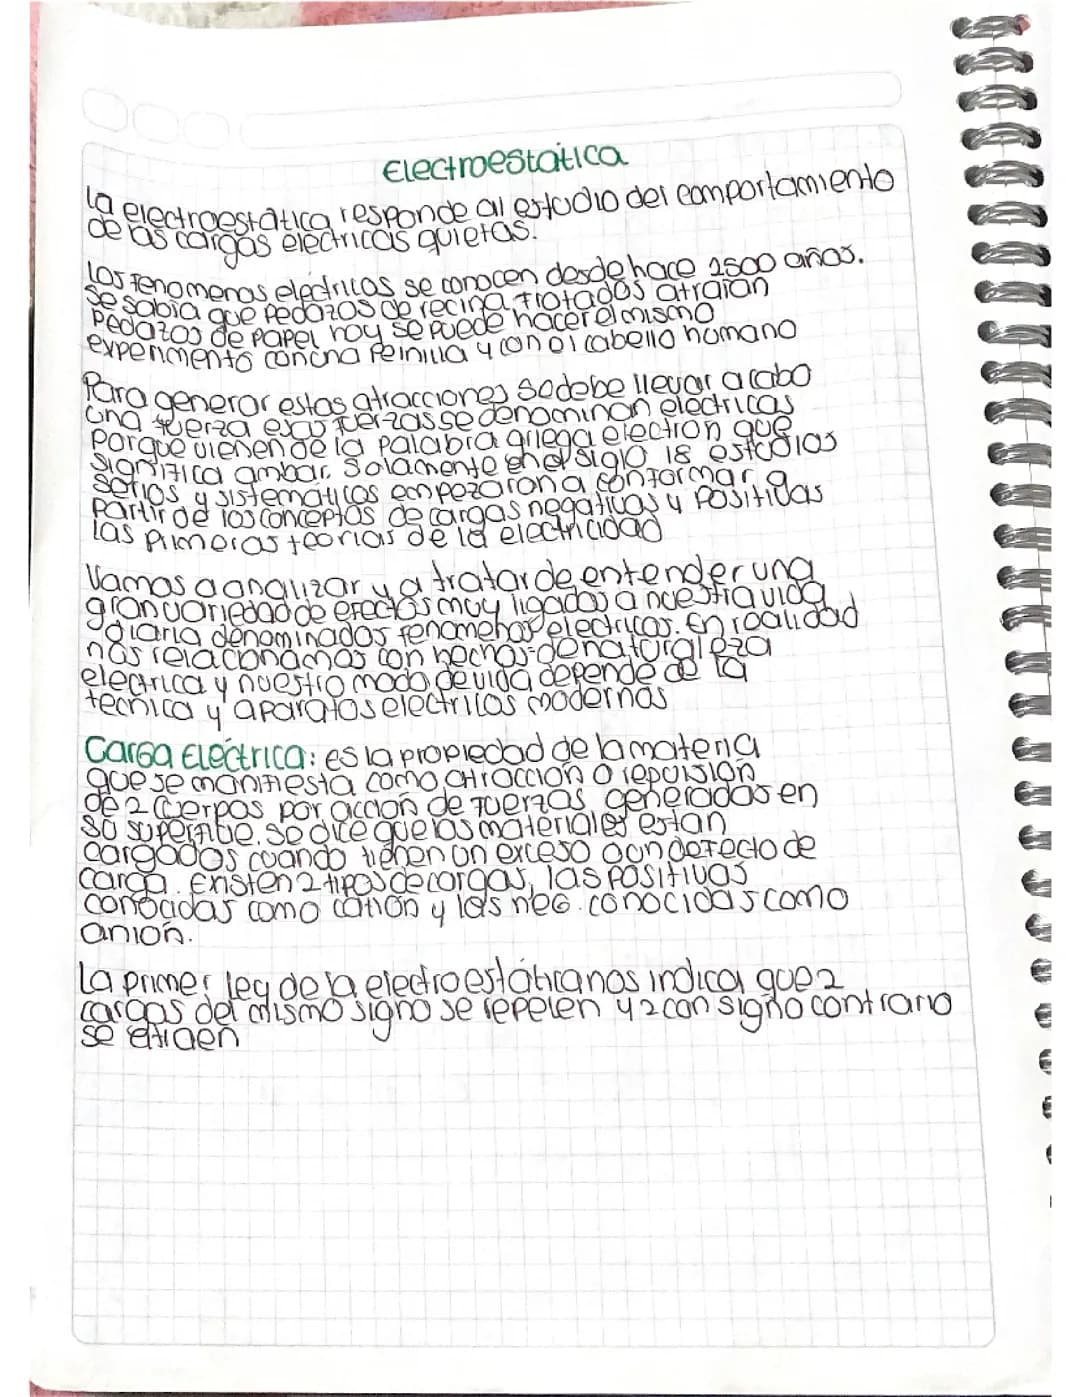 Electroestática
La electroestática responde al estudio del comportamiento
de las cargas eléctricas quietas.
Los fenomenos eléctricos se conocen desde hace 2500 años.
Se sabia que pedazos de recina frotados atraian
pedazos de papel hoy se puede hacer el mismo
experimento con una peinilla y con el cabello humano
Para generar estas atracciones se debe llevar a cabo
una fuerza esas fuerzas se denominan electricas
porque vienen de la palabra griega electron que
significa ambar. Solamente en el siglo 18 estudios
serios y sistematicos empezaron a conformar a
partir de los conceptos de cargas negativas y positivas
las primeras teorias de la electricidad
Vamos a analizar y a tratar de entender una
gran variedad de efectos muy ligados a nuestra vida
diaria denominados fenomenos electricos. En realidad
nos relacionamos con hechos de naturaleza
electrica y nuestro modo de vida depende de la
tecnica y aparatos electricos modernos
Carga Eléctrica: es la propiedad de la materia
que se manifiesta como atracción o repulsión
de 2 cuerpos por acción de fuerzas generadas en
su superficie. Se dice que los materiales estan
cargados cuando tienen un exceso o un defecto de
carga. Existen 2 tipos de cargas, las positivas
conocidas como catión y las neg. conocidas como
anión.
La primer ley de la electroestática nos indica que 2
cargas del mismo signo se repelen y 2 con signo contrario
se atraen